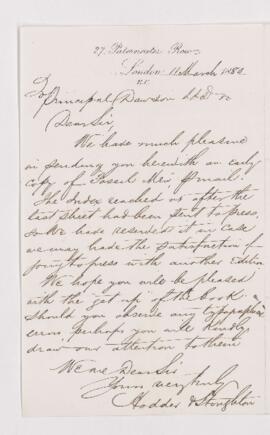 27, Paternoster Row,
London 11 March 1880
E.C.
To
Principal Dawson LLD &c
Dear Sir,
We have much pleasure
in sending you herewith an early
copy of Fossil Men pr mail.
The Index reached us after the
last sheet had been sent to press,
so we have reserved it in case
we may have the satisfaction of
going to press with another Edition
We hope you will be pleased
with the get up of the book &
should you observe any typographical
errors, perhaps you will kindly
draw our attention to them
We are Dear Sir
Yours very truly
Hodder & Stoughton